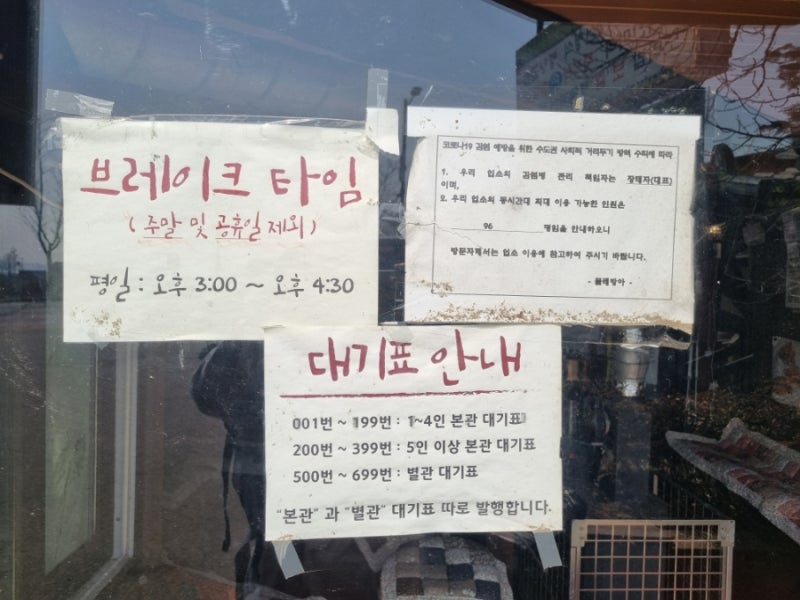 브레이크 타임
(주말 및 공휴일 제외)
평일 : 오후 3:00 ~ 오후 4:30
코로나19 감염 예방을 위한 수도권 사회적 거리두기 방역 수칙에 따라
1. 우리 업소의 감염병 관리 책임자는 장태자(대표)
이며,
2. 우리 업소의 동시간대 최대 이용 가능한 인원은
96 명임을 안내하오니
방문자께서는 업소 이용에 참고하여 주시기 바랍니다.
- 물레방아 -
대기표 안내
001번 ~ 199번 : 1~4인 본관 대기표
200번 ~ 399번 : 5인 이상 본관 대기표
500번 ~ 699번 : 별관 대기표
"본관" 과 "별관" 대기표 따로 발행합니다.